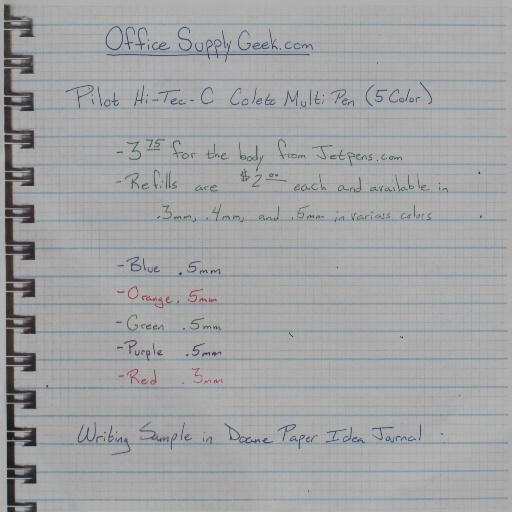 Office Supply Geek.com
Pilot Hi-Tec-C Coleto Multi Pen (5 Color)
- 3 75 for the body from Jetpens.com
- Refills are $2 00 each and available in
.3mm, .4mm, and .5mm in various colors
- Blue .5mm
- Orange .5mm
- Green .5mm
- Purple .5mm
- Red .3mm
Writing Sample in Doane Paper Idea Journal